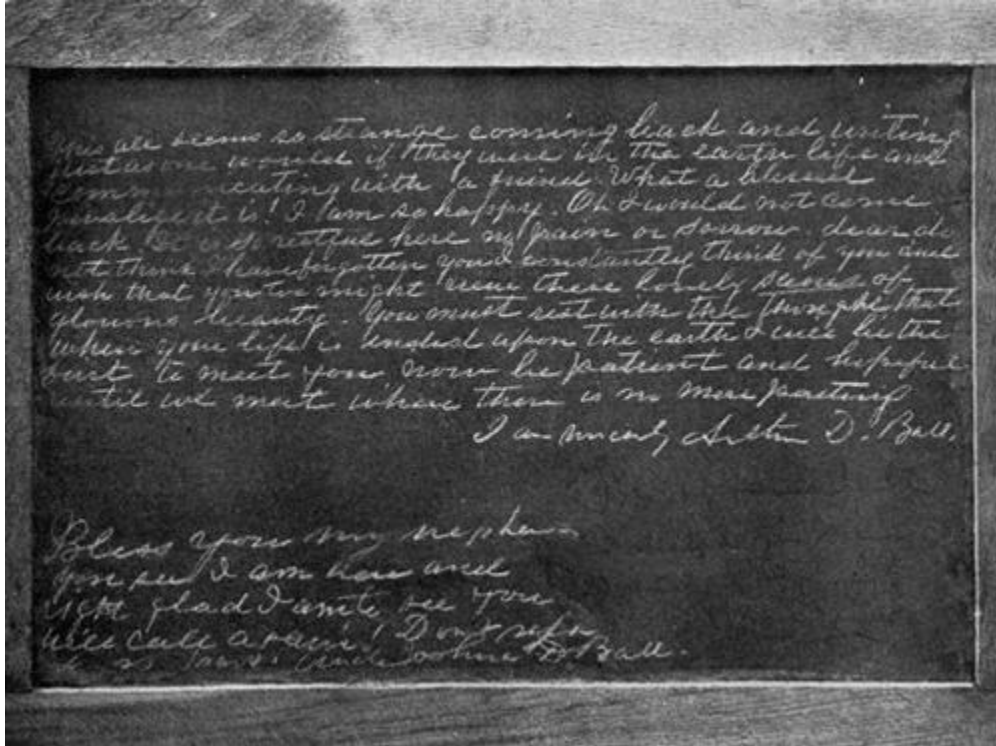 This all seems so strange coming back and writing
just as one would if they were in the earth life and
communicating with a friend. What a blessed
privilege it is! I am so happy. Oh I would not come
back. It is so restful here no pain or sorrow. dear do
not think I have forgotten you I constantly think of you and
wish that you too might view these lovely scenes of
glorious beauty. You must rest with the thought, that
when your life is ended upon the earth I will be the
first to meet you now be patient and hopeful
until we meet where there is no more parting
I am sincerely D. Ball.
Bless you my nephew
you see I am here and
right glad I am to see you
will call again! Don't
Uncle D. Ball.